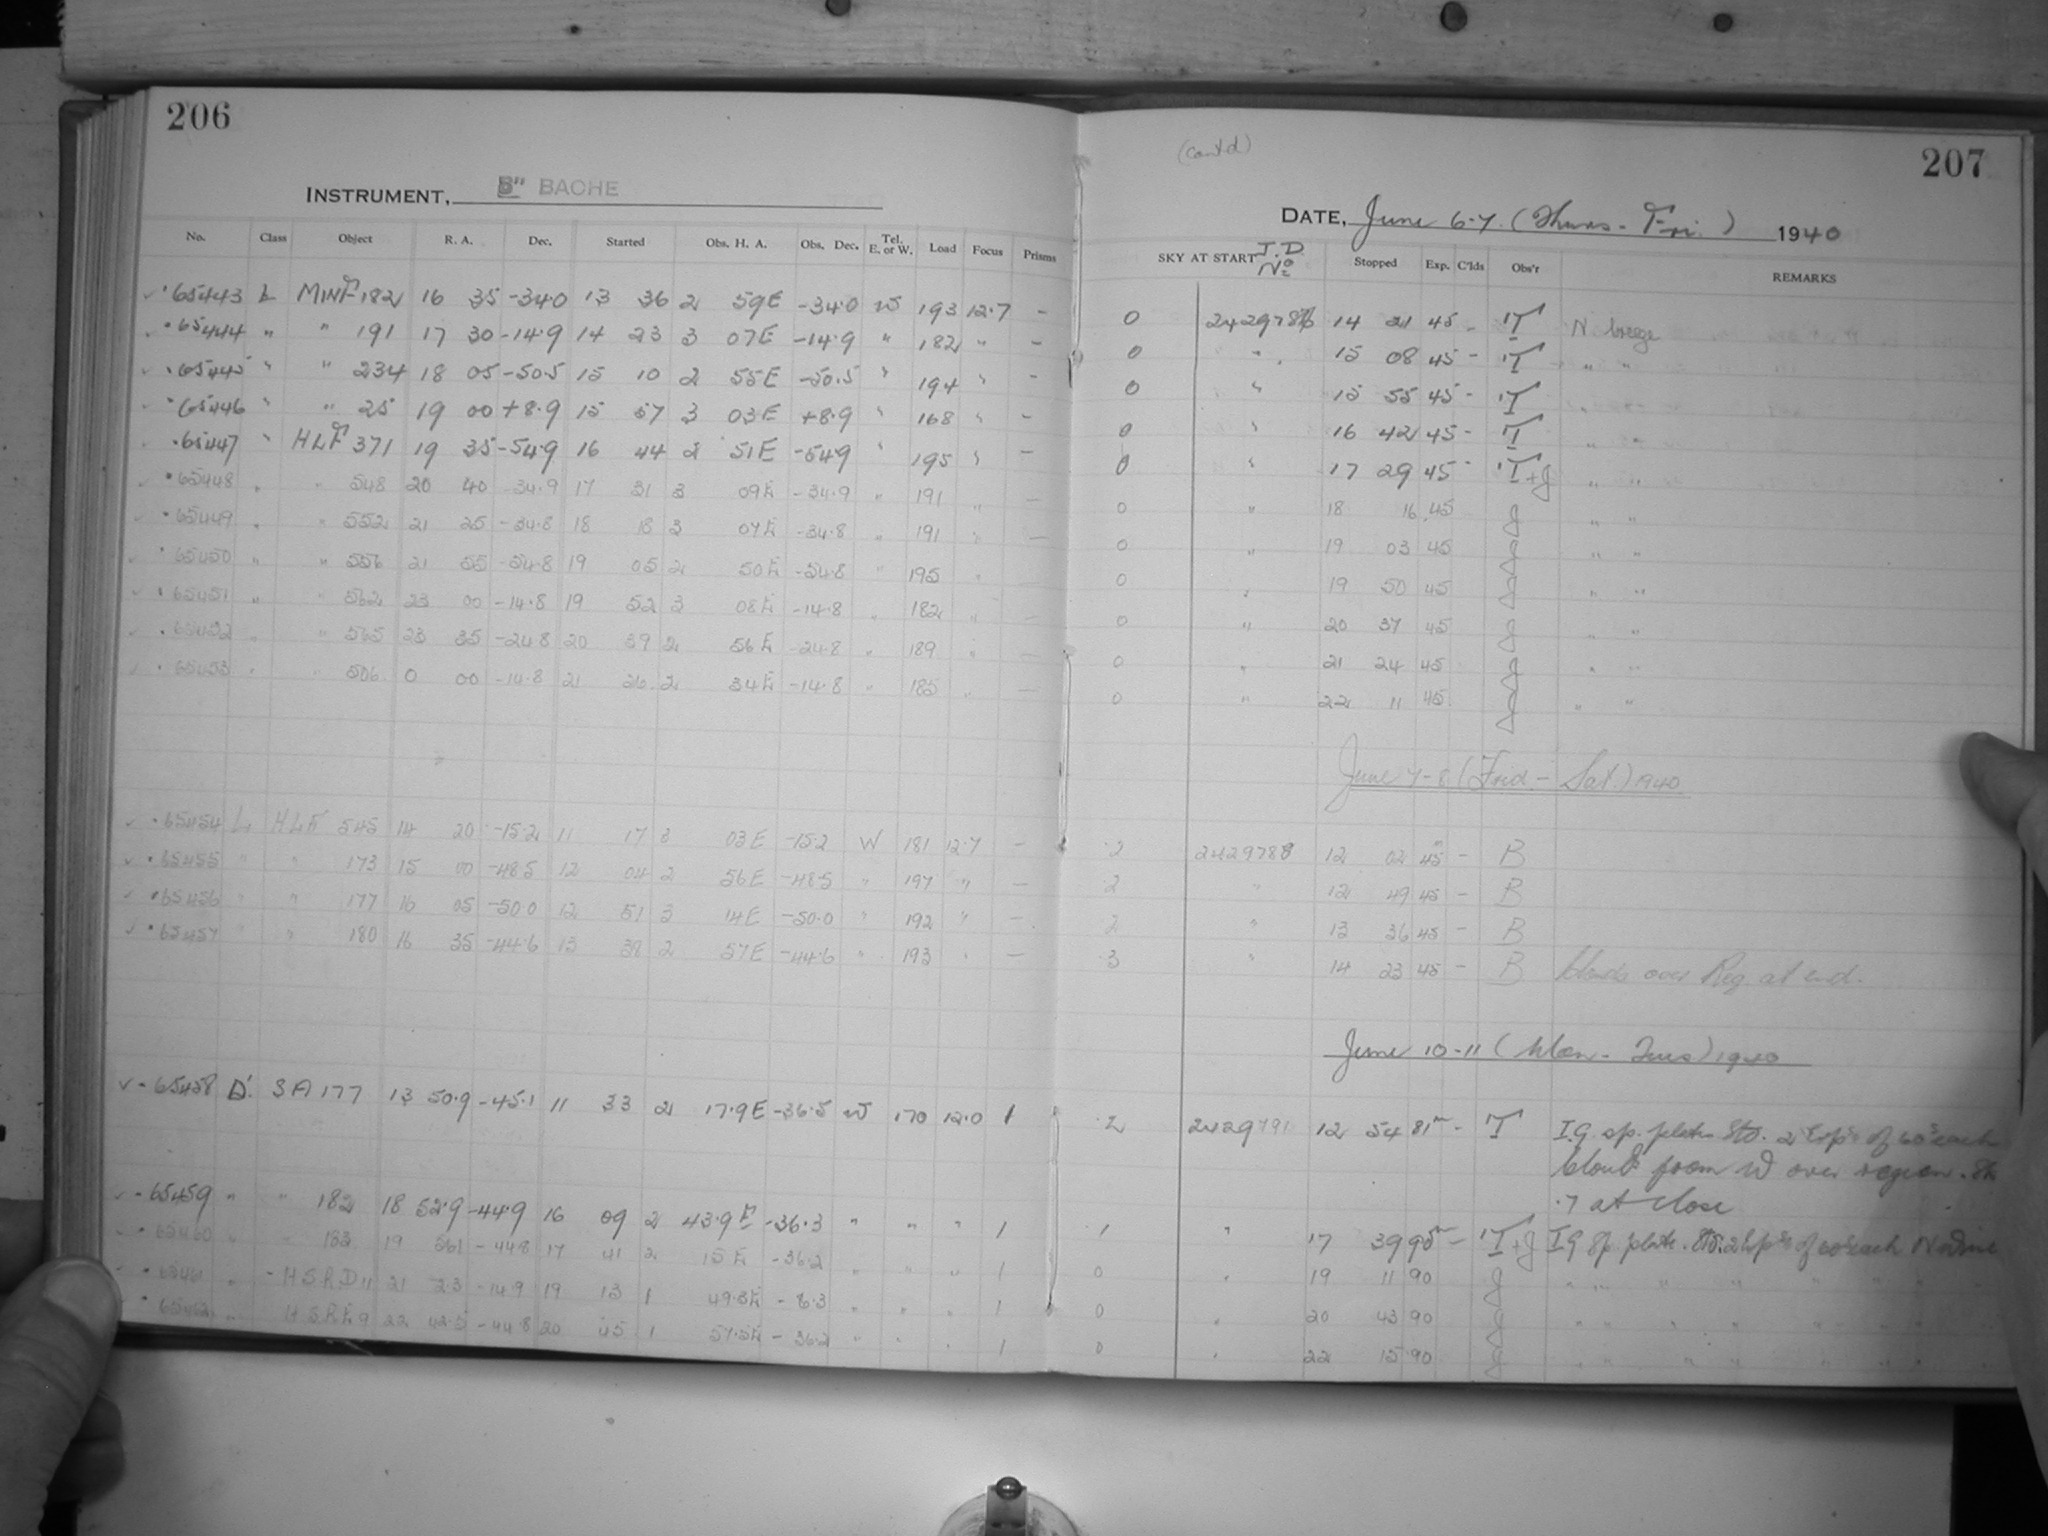 206
INSTRUMENT, 8" BACHE
No. Class Object R. A. Dec. Started Obs. H. A. Obs. Dec. Tel. E. or W. Load Focus Prisms
65443 L MINF 182 16 35 -34.0 13 36 2 59E -34.0 W 193 12.7 -
65444 " " 191 17 30 -14.9 14 23 3 07E -14.9 " 182 " -
65445 " " 234 18 05 -50.5 15 10 2 55E -50.5 " 194 " -
65446 " " 25 19 00 +8.9 15 57 3 03E +8.9 " 168 " -
65447 " HLF 371 19 35 -54.9 16 44 2 51E -54.9 " 195 " -
65448 " " 548 20 40 -34.9 17 31 3 09E -34.9 " 191 " -
65449 " " 552 21 25 -34.8 18 18 3 07E -34.8 " 191 " -
65450 " " 556 21 55 -54.8 19 05 2 50E -54.8 " 195 " -
65451 " " 562 23 00 -14.8 19 52 3 08E -14.8 " 182 " -
65452 " " 565 23 35 -24.8 20 39 2 56E -24.8 " 189 " -
65453 " " 506 0 00 -14.8 21 26 2 34E -14.8 " 185 " -
65454 L HLF 545 14 20 -15.2 11 17 3 03E -15.2 W 181 12.7 -
65455 " " 173 15 00 -48.5 12 04 2 56E -48.5 " 197 " -
65456 " " 177 16 05 -50.0 12 51 3 14E -50.0 " 192 " -
65457 " " 180 16 35 -44.6 13 38 2 57E -44.6 " 193 " -
65458 D' SA 177 13 50.9 -45.1 11 33 2 17.9E -36.5 W 170 12.0 1
65459 " " 182 18 52.9 -44.9 16 09 2 43.9E -36.3 " " " 1
65460 " " 183 19 56.1 -44.8 17 41 2 15E -36.2 " " " 1
65461 " HSRD 11 21 23 -14.9 19 13 1 49.3E -6.3 " " " 1
65462 " HSRE 9 22 42.5 -44.8 20 45 1 57.5E -36.2 " " " 1
(Cont'd)
207
DATE, June 6-7 (Thurs - Fri.) 1940
SKY AT START J.D. No Stopped Exp. C'lds Obs'r REMARKS
0 2429787 14 21 45 - T N breeze
0 " 15 08 45 - T " "
0 " 15 55 45 - T "
0 " 16 42 45 - T "
0 " 17 29 45 - T+J " "
0 " 18 16 45 J " "
0 " 19 03 45 J " "
0 " 19 50 45 J " "
0 " 20 37 45 J " "
0 " 21 24 45 J " "
0 " 22 11 45 J " "
June 7-8 (Frid - Sat.) 1940
2 2429788 12 02 45 - B
2 " 12 49 45 - B
2 " 13 36 45 - B
3 " 14 23 45 - B Clouds over Reg. at end.
June 10-11 (Mon - Tues) 1940
2 2429791 12 54 81m - T I.G sp. plate Std. 2 Exps of 60s each
Clouds from W over region. Sk
.7 at close
1 " 17 39 90m - T+J IG sp. plate. Std. 2 Exps of 60s each N wind
0 " 19 11 90 J " " " " " "
0 " 20 43 90 J " " " " " "
0 " 22 15 90 J " " " " " "